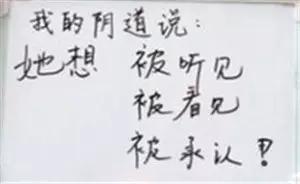 我的阴道说：
她想 被听见
被看见
被承认！